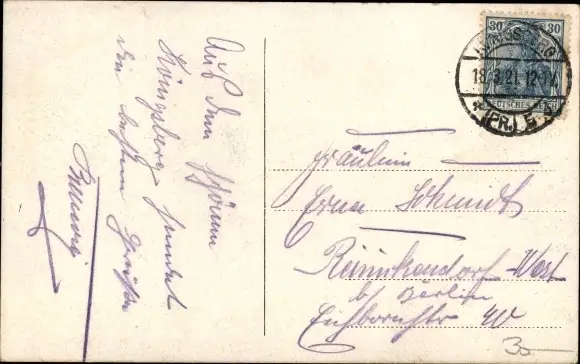 Auf dem schönen
Königsberg sendet
die besten Grüße
30 30
DEUTSCHES REICH
KÖNIGSBERG
18.3.21. 12-1
* (PR.) 5
Fräulein
Erna Schmidt
Reinickendorf-West
b/ Berlin
Eichbornstr 40
30-